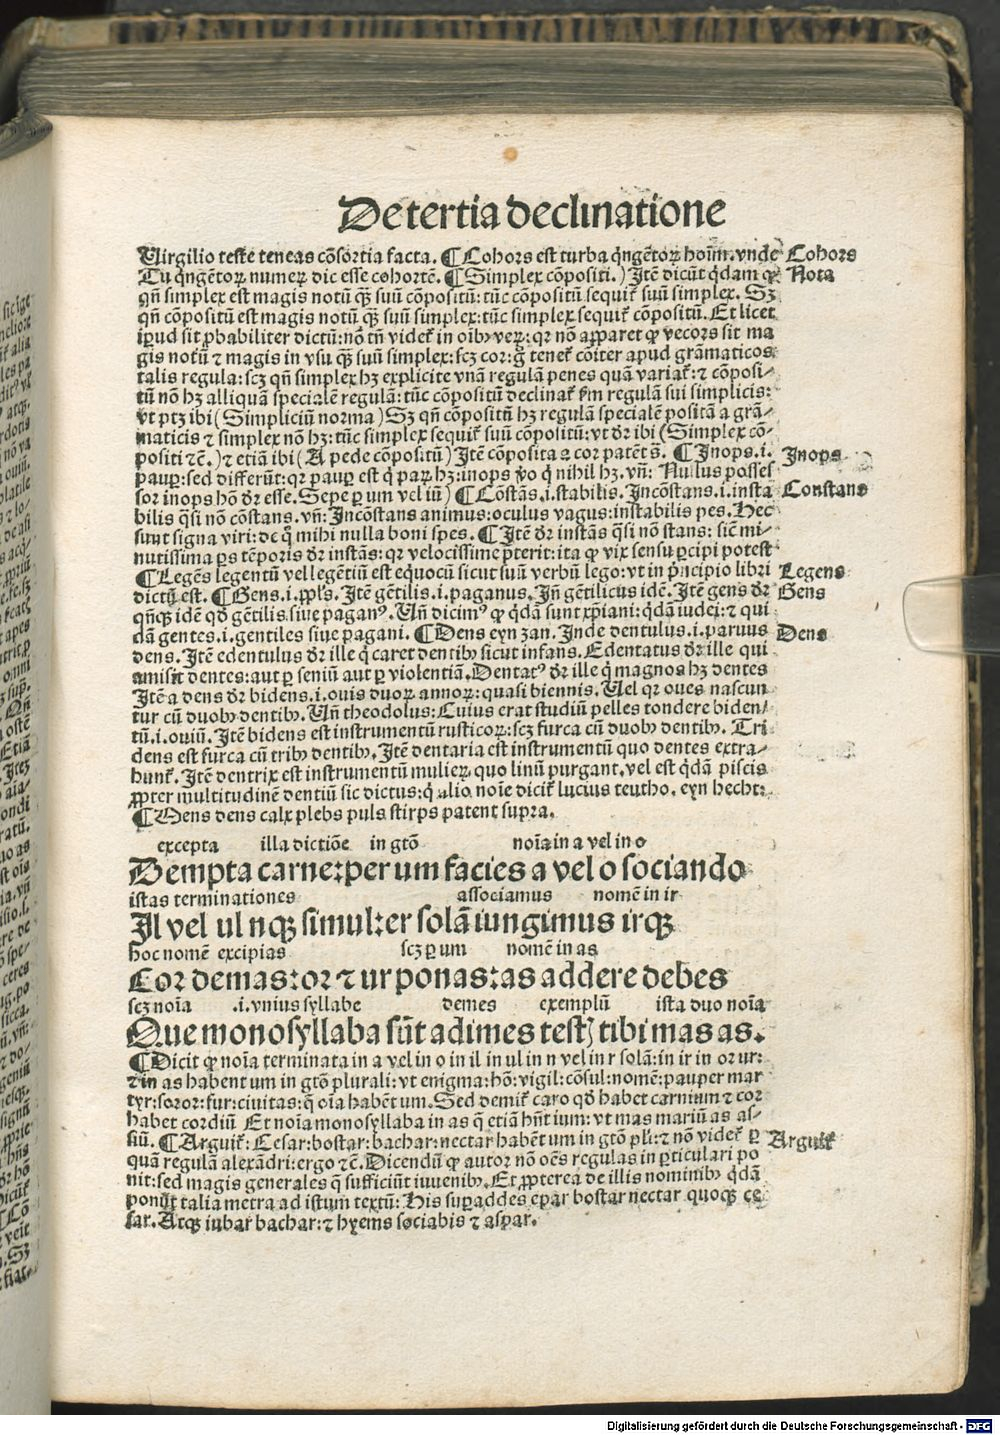 De tertia declinatione
Virgilio teste teneas cõsortia facta. ¶ Cohors est turba q̃ngẽtoꝝ hoĩm. vnde Cohors
Tu q̃ngẽtoꝝ numeꝝ dic esse cohortẽ. ¶ Simplex cõpositi.) Itẽ dicũt q̃dam ꝙ Nota
qñ simplex est magis notũ qꝫ̃ suũ cõpositũ: tũc cõpositũ sequiť suũ simplex. Sꝫ
qñ cõpositũ est magis notũ qꝫ̃ suũ simplex: tũc simplex sequiť cõpositũ. Et licet
ip̃ud sit ꝓbabiliter dictũ: nõ tñ videť in oĩbꝰ veꝝ: qꝛ nõ apparet ꝙ vecors sit ma
gis notũ ⁊ magis in vsu qꝫ̃ suũ simplex: scꝫ cor: g̃ teneť cõiter apud grãmaticos
talis regula: scꝫ qñ simplex hꝫ explicite vnã regulã penes quã variať: ⁊ cõposi-
tũ nõ hꝫ aliquã specialẽ regulã: tũc cõpositũ declinať ẜm regulã sui simplicis:
vt ptꝫ ibi (Simpliciũ norma) Sꝫ qñ cõpositũ hꝫ regulã specialẽ positã a grã-
maticis ⁊ simplex nõ hꝫ: tũc simplex sequiť suũ cõpositũ: vt dr̃ ibi (Simplex cõ-
positi ⁊c̃.) ⁊ etiã ibi (A pede cõpositũ) Itẽ cõposita a cor patẽt s̃. ¶ Inops .i. Inops
pauꝑ: sed differũt: qꝛ pauꝑ est q̃ paꝝ hꝫ: inops ꝟo q̃ nihil hꝫ. vñ: Nullus posses
sor inops hõ dr̃ esse. Sepe ꝑ um vel iũ) ¶ Cõstãs .i. stabilis. Incõstans .i. insta Constans
bilis q̃si nõ cõstans. vñ: Incõstans animus: oculus vagus: instabilis pes. Hec
sunt signa viri: de q̃ mihi nulla boni spes. ¶ Itẽ dr̃ instãs q̃si nõ stans: sic̃ mi-
nutissima ꝑs tẽporis dr̃ instãs: qꝛ velocissime p̃terit: ita ꝙ vix sensu ꝑcipi potest
¶ Legẽs legentũ vel legẽtiũ est equocũ sicut suũ verbũ lego: vt in p̃ncipio libri Legens
dictũ est. ¶ Gens .i. ppl̃s. Itẽ gẽtilis .i. paganus. Iñ gẽtilicus idẽ. Itẽ gens dr̃ Gens
qñqꝫ idẽ qđ gẽtilis siue paganꝰ. Vñ dicimꝰ ꝙ q̃dã sunt xp̃iani: q̃dã iudei: ⁊ qui
dã gentes .i. gentiles siue pagani. ¶ Dens eyn zan. Inde dentulus .i. paruus Dens
dens. Itẽ edentulus dr̃ ille q̃ caret dentibꝰ sicut infans. Edentatus dr̃ ille qui
amisit dentes: aut ꝑ seniũ aut ꝑ violentiã. Dentatꝰ dr̃ ille q̃ magnos hꝫ dentes
Itẽ a dens dr̃ bidens .i. ouis duoꝝ annoꝝ: quasi biennis. Vel qꝛ oues nascun
tur cũ duobꝰ dentibꝰ. Vñ theodolus: Cuius erat studiũ pelles tondere biden/
tũ .i. ouiũ. Itẽ bidens est instrumentũ rusticoꝝ: scꝫ furca cũ duobꝰ dentibꝰ. Tri
dens est furca cũ tribꝰ dentibꝰ. Itẽ dentaria est instrumentũ quo dentes extra-
hunť. Itẽ dentrix est instrumentũ mulieꝝ quo linũ purgant. vel est q̃dã piscis
ꝓpter multitudinẽ dentiũ sic dictus: q̃ alio noĩe diciť lucius teutho. eyn hecht.
¶ Mens dens calx plebs puls stirps patent supra.
excepta illa dictiõe in gtõ noĩa in a vel in o
Dempta carne: per um facies a vel o sociando
istas terminationes associamus nomẽ in ir
Il vel ul nqꝫ simul: er solã iungimus irqꝫ
hoc nomẽ excipias scꝫ ꝑ um nomẽ in as
Cor demas: or ⁊ ur ponas: as addere debes
scꝫ noĩa .i. vnius syllabe demes exemplũ ista duo noĩa
Que monosyllaba sũt adimes testꝭ tibi mas as.
¶ Dicit ꝙ noĩa terminata in a vel in o in il in ul in n vel in r solã: in ir in or ur:
⁊ in as habent um in gtõ plurali: vt enigma: hõ: vigil: cõsul: nomẽ: pauper mar
tyr: soror: fur: ciuitas: q̃ oĩa habẽt um. Sed demiť caro qđ habet carnium ⁊ cor
habet cordiũ Et noĩa monosyllaba in as q̃ etiã hñt ium: vt mas mariũ as as-
siũ. ¶ Arguiť: Cesar: bostar: bachar: nectar habẽt um in gtõ pl̃i: ⁊ nõ videť ꝑ Arguiť
quã regulã alexãdri: ergo ⁊c̃. Dicendũ ꝙ autor nõ oẽs regulas in ꝑticulari po
nit: sed magis generales q̃ sufficiũt iuuenibꝰ. Et ꝓpterea de illis nominibꝰ q̃dã
ponũt talia metra ad istum textũ: His suꝑaddes epar bostar nectar quoqꝫ ce
sar. Atqꝫ iubar bachar: ⁊ hyems sociabis ⁊ aspar.
Digitalisierung gefördert durch die Deutsche Forschungsgemeinschaft - DFG